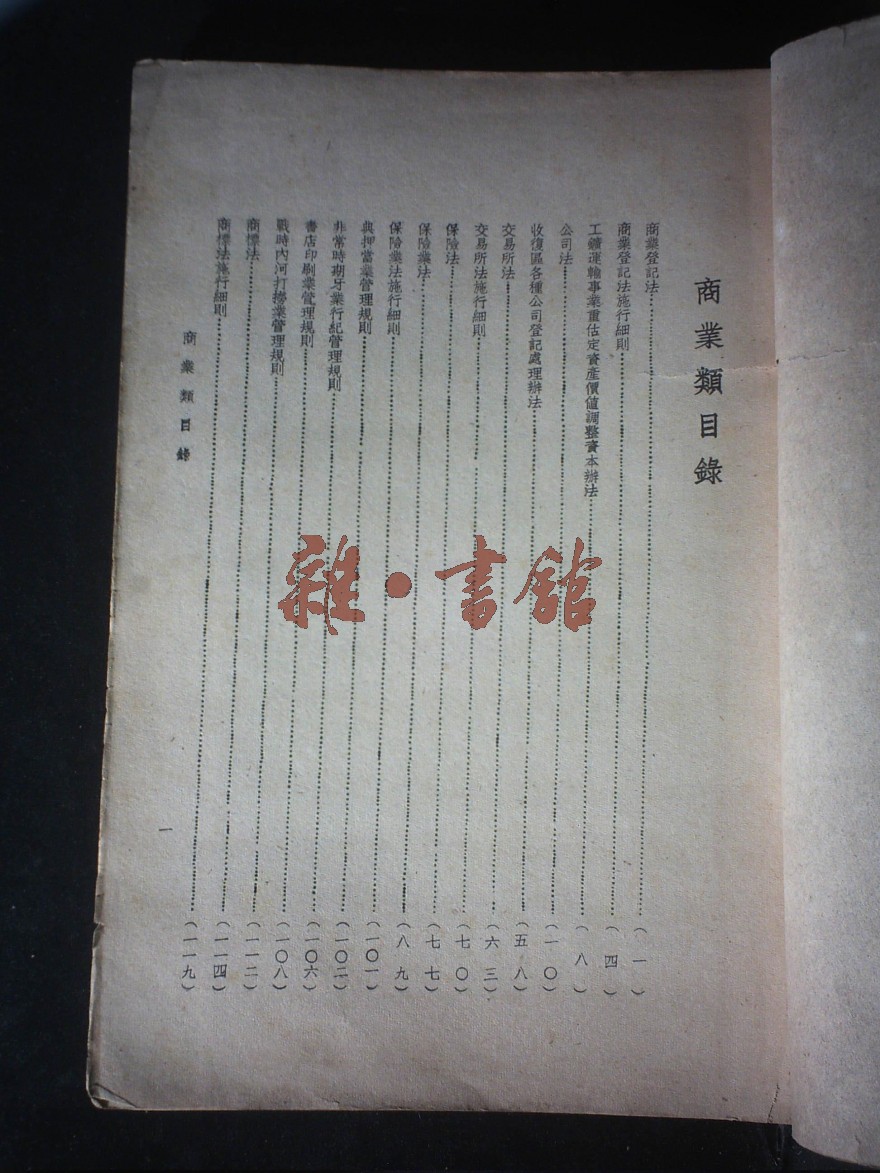 商業類目錄
商業登記法……（一）
商業登記法施行細則……（四）
工鑛運輸事業重估定資產價值調整資本辦法……（八）
公司法……（一〇）
收復區各種公司登記處理辦法……（五八）
交易所法……（六三）
交易所法施行細則……（七〇）
保險法……（七七）
保險業法……（八九）
保險業法施行細則……（一〇一）
典押當業管理規則……（一〇二）
非常時期牙業行紀管理規則……（一〇六）
書店印刷業管理規則……（一〇八）
戰時內河打撈業管理規則……（一一二）
商標法……（一一四）
商標法施行細則……（一一九）
商業類目錄
一
雜·書館